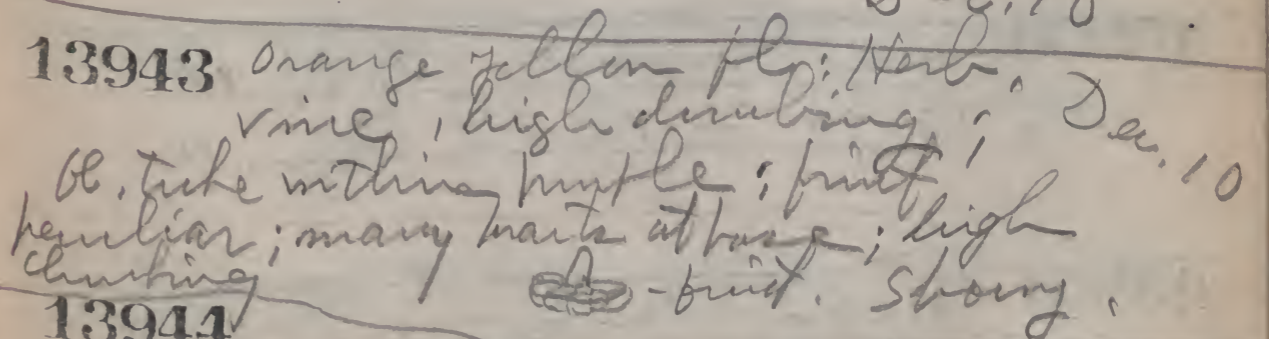 13943 Orange yellow flo; Herb.
vine, high climbing; Dec. 10
tube within purple; fruit
peculiar; many bracts at base; high
climbing - fruit. Showy.
13944